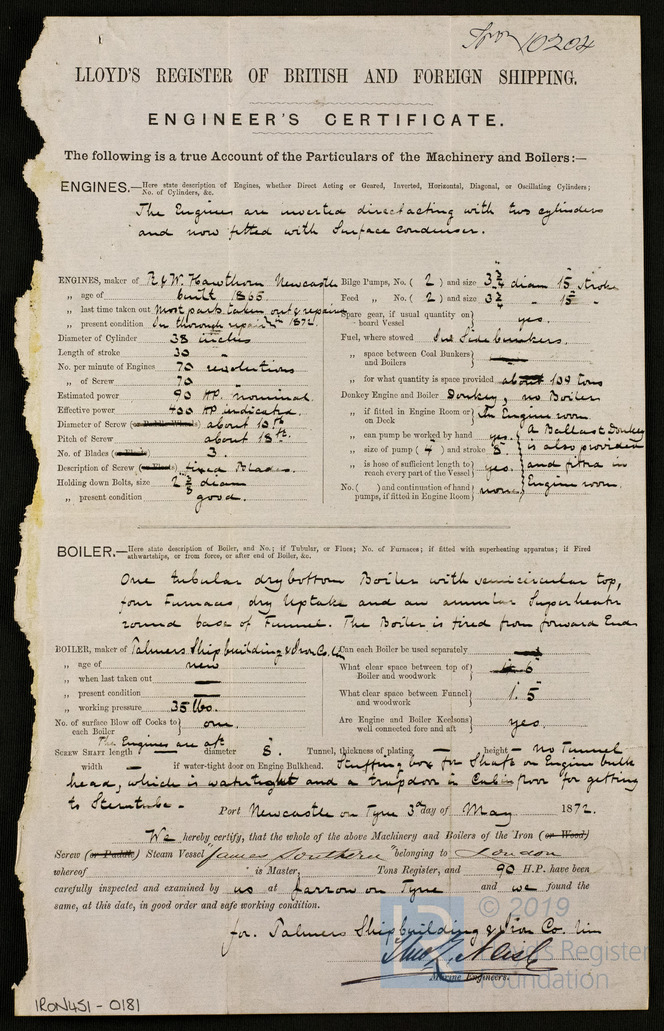 Iron 10204
LLOYD'S REGISTER OF BRITISH AND FOREIGN SHIPPING.
ENGINEER'S CERTIFICATE.
The following is a true Account of the Particulars of the Machinery and Boilers:—
ENGINES.—Here state description of Engines, whether Direct Acting or Geared, Inverted, Horizontal, Diagonal, or Oscillating Cylinders;
No. of Cylinders, &c.
The Engines are inverted direct acting with two cylinders
and now fitted with Surface condenser.
ENGINES, maker of R & W. Hawthorn Newcastle
„ age of built 1865
„ last time taken out Most parts taken out & repaired
„ present condition In thorough repair 1872
Diameter of Cylinder 38 inches
Length of stroke 30 "
No. per minute of Engines 70 revolutions
„ of Screw 70
Estimated power 90 HP. nominal.
Effective power 400 HP indicated.
Diameter of Screw (or Paddle Wheels) about 13 ft.
Pitch of Screw about 18 ft.
No. of Blades (or Floats) 3.
Description of Screw (or Floats) fixed Blades.
Holding down Bolts, size diam
„ present condition good.
Bilge Pumps, No. ( 2 ) and size 3 3/4 diam 15 stroke
Feed „ No. ( 2 ) and size 3 3/4 " 15 "
Spare gear, if usual quantity on board Vessel } yes.
Fuel, where stowed In Side bunkers.
„ space between Coal Bunkers and Boilers }
„ for what quantity is space provided about 109 tons
Donkey Engine and Boiler Donkey, no Boiler
„ if fitted in Engine Room or on Deck } In Engine room
„ can pump be worked by hand yes. } A Ballast Donkey
„ size of pump ( 4 ) and stroke 8. } is also provided
„ is hose of sufficient length to reach every part of the Vessel } yes. } and fitted in
No. ( ) and continuation of hand pumps, if fitted in Engine Room } none } Engine room.
BOILER.—Here state description of Boiler, and No.; if Tubular, or Flues; No. of Furnaces; if fitted with superheating apparatus; if Fired
athwartships, or from force, or after end of Boiler, &c.
One tubular dry bottom Boiler with semicircular top,
four Furnaces, dry Uptake and an annular Superheater
round base of Funnel. The Boiler is fired from forward End.
BOILER, maker of Palmers Shipbuilding & Iron Co. Ld
„ age of new
„ when last taken out —
„ present condition —
„ working pressure 35 lbs.
No. of surface Blow off Cocks to each Boiler } one.
Can each Boiler be used separately
What clear space between top of Boiler and woodwork }
What clear space between Funnel and woodwork } 1. 5
Are Engine and Boiler Keelsons well connected fore and aft } yes.
The Engines are aft
SCREW SHAFT length diameter 8. Tunnel, thickness of plating height — No Tunnel
width — if water-tight door on Engine Bulkhead. Stuffing box for Shaft on Engine bulk
head, which is watertight and a trapdoor in Cabin floor for getting
to Sterntube -
Port Newcastle on Tyne 3rd day of May 1872.
We hereby certify, that the whole of the above Machinery and Boilers of the Iron (or Wood)
Screw (or Paddle) Steam Vessel "James Southern" belonging to London
whereof is Master, Tons Register, and 90 H.P. have been
carefully inspected and examined by us at Jarrow on Tyne and we found the
same, at this date, in good order and safe working condition.
for. Palmers Shipbuilding & Iron Co. lim
Marine Engineers.
IRON451-0181
© 2019
Lloyd's Register
Foundation
LR